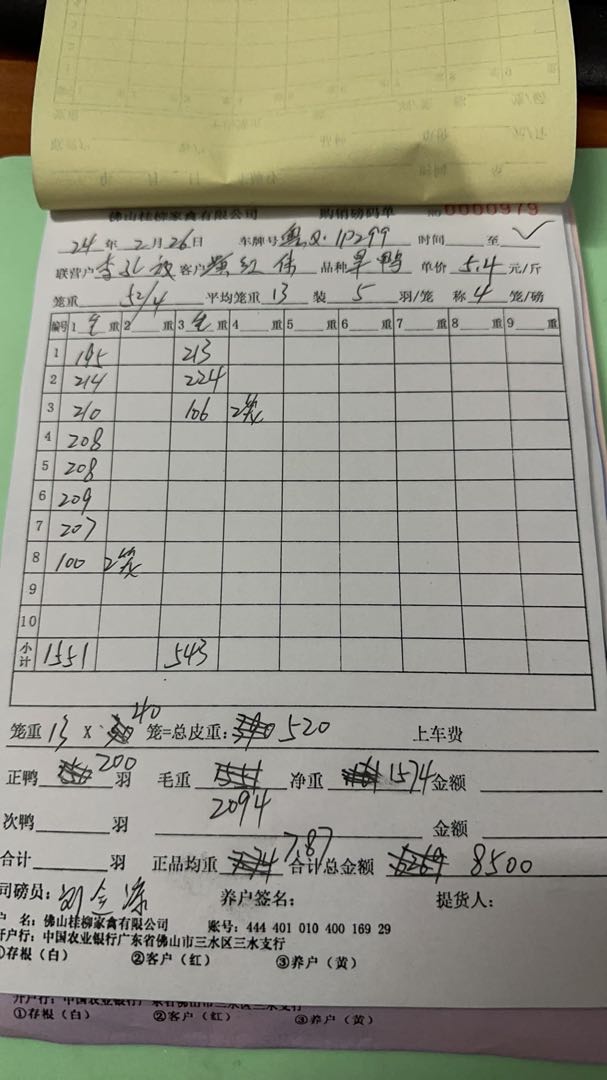 佛山桂柳家禽有限公司 购销磅码单 № 0000979
24年2月26日 车牌号 粤Q·1P299 时间 至 ✓
联营户 李 客户 红伟 品种 旱鸭 单价 5.4 元/斤
笼重 52/4 平均笼重 13 装 5 羽/笼 称 4 笼/磅
编号 1 毛 重 2 重 3 毛 重 4 重 5 重 6 重 7 重 8 重 9 重
1 195 213
2 214 224
3 210 106 2笼
4 208
5 208
6 209
7 207
8 100 2笼
9
10
小计 1551 543
笼重 13 X 40 笼=总皮重: 520 上车费
正鸭 200 羽 毛重 2094 净重 1574 金额
次鸭 羽 金额
合计 羽 正品均重 7.87 合计总金额 8500
司磅员: 刘 养户签名: 提货人:
户 名: 佛山桂柳家禽有限公司 账号: 444 401 010 400 169 29
开户行: 中国农业银行广东省佛山市三水区三水支行
①存根（白） ②客户（红） ③养户（黄）
开户行: 中国农业银行广东省佛山市三水区三水支行
①存根（白） ②客户（红） ③养户（黄）